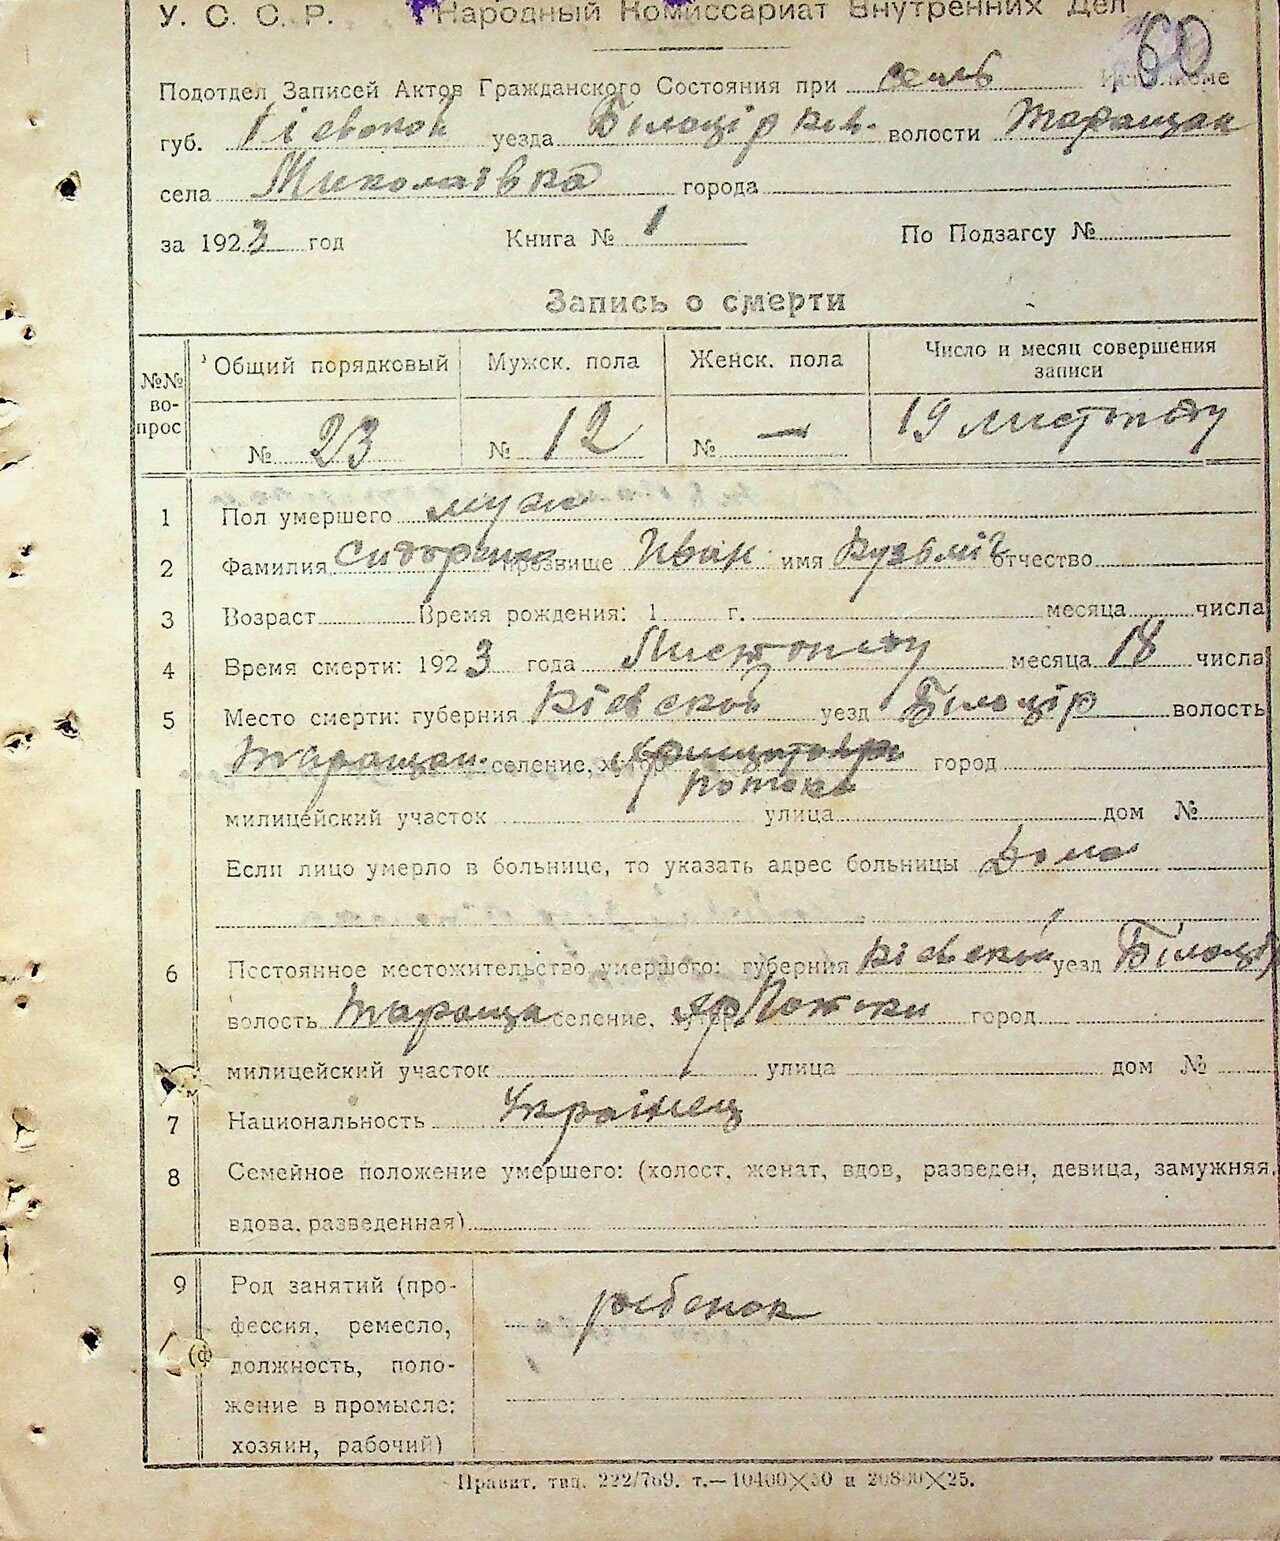 У. С. С. Р. Народный Комиссариат Внутренних Дел
60
Подотдел Записей Актов Гражданского Состояния при сель
губ. Кіевской уезда Білоцірків. волости Таращан
села Миколаівка города
за 1923 год Книга № 1 По Подзагсу №
Запись о смерти
№№ вопрос Общий порядковый Мужск. пола Женск. пола Число и месяц совершения записи
№ 23 № 12 № — 19 листопаду
1 Пол умершего муж
2 Фамилия Сидоренко прозвище Иван имя Кузьміч отчество
3 Возраст Время рождения: 1 г. месяца числа
4 Время смерти: 1923 года Листопаду месяца 18 числа
5 Место смерти: губерния Кіевской уезд Білоцір волость
Таращан. селение, город
Потоки
милицейский участок улица дом №
Если лицо умерло в больнице, то указать адрес больницы дома
6 Постоянное местожительство умершого: губерния Кіевской уезд Білоцір
волость Тараща селение, Потоки город
милицейский участок улица дом №
7 Национальность Українец
8 Семейное положение умершего: (холост, женат, вдов, разведен, девица, замужняя,
вдова, разведенная)
9 Род занятий (про-
фессия, ремесло, ребенок
должность, поло-
жение в промысле:
хозяин, рабочий)
Правит. тип. 222/769. т.—10400×50 и 20800×25.